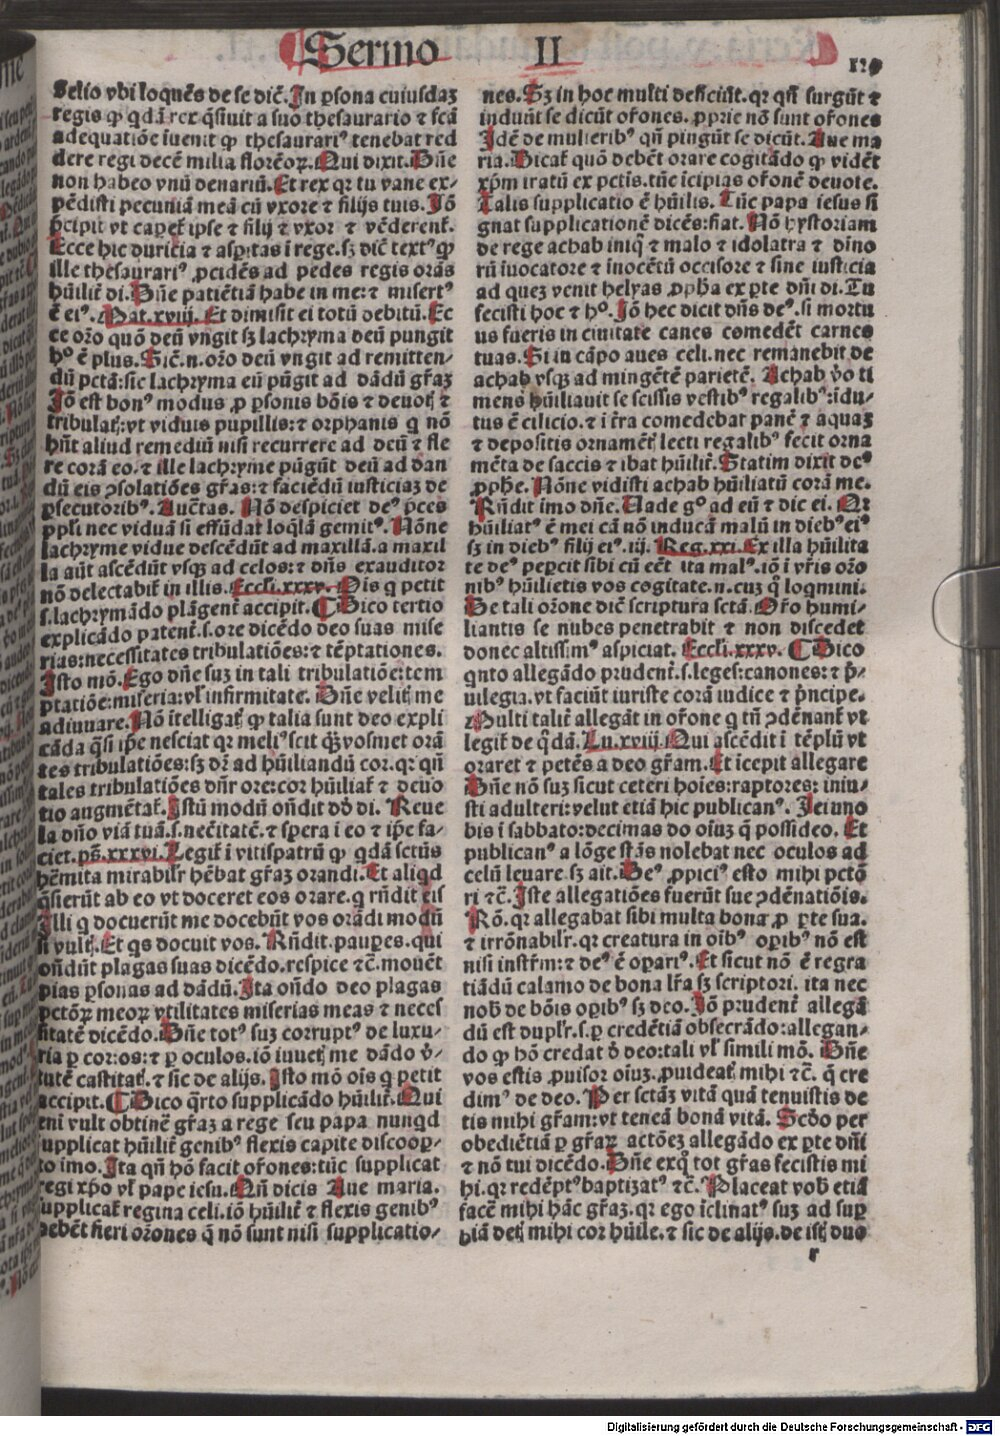 Sermo II 129
gelio vbi loquēs de se dic̄. In ꝑsona cuiusdaꝫ
regis ꝙ qdā rex q̄siuit a suo thesaurario ⁊ fcā
adequatiōe iuenit ꝙ thesaurariꝰ tenebat red
dere regi decē milia florēoꝝ. Qui dixit. Dn̄e
non habeo vnū denariū. Et rex qꝛ tu vane ex⸗
pēdisti pecuniā meā cū vxore ⁊ filijs tuis. Iō
p̄cipit vt capet̄ ipse ⁊ filij ⁊ vxor ⁊ vēderent̄.
Ecce hic duricia ⁊ asꝑitas ī rege. sꝫ dic̄ textꝰ ꝙ
ille thesaurariꝰ ꝓcidēs ad pedes regis orās
hūilit̄ di. Dn̄e patiētiā habe in me: ⁊ misertꝰ
ē eiꝰ. Mat. xviij. Et dimisit ei totū debitū. Ec
ce oŕo quō deū vngit sꝫ lachryma deū pungit
hͦ ē plus. Sic̄. n. oŕo deū vngit ad remitten⸗
dū pctā: sic lachryma eū pūgit ad dādū gr̄aꝫ
Iō est bonꝰ modus ꝓ ꝑsonis bōis ⁊ deuotꝭ ⁊
tribulatꝭ: vt viduis pupillis: ⁊ orphanis q nō
hn̄t aliud remediū nisi recurrere ad deū ⁊ fle
re corā eo. ⁊ ille lachryme pūgūt deū ad dan
dū eis ꝯsolatiōes gr̄as: ⁊ faciēdū iusticiaꝫ de
ꝑsecutoribꝰ. Auctas. Nō despiciet deꝰ p̄ces
ppl̄i nec viduā si effūdat loqlā gemitꝰ. Nōne
lachryme vidue descēdūt ad maxillā. a maxil
la aūt ascēdūt vsqꝫ ad celos: ⁊ dn̄s exauditor
nō delectabit̄ in illis. Eccli. xxxv. Ois q petit
s. lachrymādo plāgent̄ accipit. ¶ Dico tertio
explicādo patent̄. s. ore dicēdo deo suas mise
rias: necessitates tribulatiōes: ⁊ tēptationes.
Isto mō. Ego dn̄e suꝫ in tali tribulatiōe: tem
ptatiōe: miseria: vl̄ infirmitate. Dn̄e velitꝭ me
adiuuare. Nō ītelligatꝭ ꝙ talia sunt deo expli
cāda q̄si ip̄e nesciat qꝛ meliꝰ scit qꝫ vosmet orā
tes tribulatiōes: sꝫ dꝛ̄ ad hūiliandū cor. qꝛ qn̄
tales tribulatiōes dn̄r ore: cor hūiliat̄ ⁊ deuo
tio augmētat̄. Istū modū on̄dit dd̄ di. Reue
la dn̄o viā tuā. s. nec̄itatē. ⁊ spera ī eo ⁊ ip̄e fa⸗
ciet. ps̄. xxxvi. Legit̄ ī vitispatrū ꝙ qdā sctūs
hēmita mirabilr̄ hēbat gr̄aꝫ orandi. Et aliqd
q̄sierūt ab eo vt doceret eos orare. q rn̄dit eis
Illi q docuerūt me docebūt vos orādi modū
si vultꝭ. Et qs docuit vos. Rn̄dit. pauꝑes. qui
on̄dūt plagas suas dicēdo. respice ⁊c̄. mouēt
pias ꝑsonas ad dādū. Ita on̄do deo plagas
pctōꝝ meoꝝ vtilitates miserias meas ⁊ neces
sitatē dicēdo. Dn̄e totꝰ suꝫ corruptꝰ de luxu⸗
ria ꝑ cor: os: ⁊ ꝑ oculos. iō iuuetꝭ me dādo v̄⸗
tutē castitatꝭ. ⁊ sic de alijs. Isto mō ois q petit
accipit. ¶ Dico q̄rto supplicādo hūilit̄. Qui
eni vult obtinē gr̄aꝫ a rege seu papa nunqd
supplicat hūilit̄ genibꝰ flexis capite discooꝑ⸗
to imo. Ita qn̄ hō facit or̄ones: tūc supplicat
regi xp̄o vl̄ pape iesu. Qn̄ dicis Aue maria.
supplicat̄ regina celi. iō hūilit̄ ⁊ flexis genibꝰ
debēt fieri oŕones q̄ nō sunt nisi supplicatio⸗
nes. Sꝫ in hoc multi deficiūt. qꝛ qn̄ surgūt ⁊
induūt se dicūt or̄ones. ꝓprie nō sunt or̄ones
Idē de mulieribꝰ qn̄ pingūt se dicūt. Aue ma
ria. Dicat̄ quō debēt orare cogitādo ꝙ vidēt
xp̄m iratū ex pctis. tūc īcipias or̄onē deuote.
Talis supplicatio ē hūilis. Tūc papa iesus si
gnat supplicationē dicēs: fiat. Nō hystoriam
de rege achab iniq̄ ⁊ malo ⁊ idolatra ⁊ dīno
rū iuocatore ⁊ inocētū occisore ⁊ sine iusticia
ad quez venit helyas ꝓph̄a ex ꝑte dn̄i di. Tu
fecisti hoc ⁊ hͦ. Iō hec dicit dn̄s deꝰ. si mortu
us fueris in ciuitate canes comedēt carnes
tuas. Si in cāpo aues celi. nec remanebit de
achab vsqꝫ ad mingētē parietē. Achab v̄o ti
mens hūiliauit se scissis vestibꝰ regalibꝰ: īdu⸗
tus ē cilicio. ⁊ ī t̄ra comedebat panē ⁊ aquaꝫ
⁊ depositis ornamētꝭ lecti regalibꝰ fecit orna
mēta de saccis ⁊ ibat hūilit̄. Statim dixit deꝰ
ꝓph̄e. Nōne vidisti achab hūiliatū corā me.
Rn̄dit imo dn̄e. Uade gͦ ad eū ⁊ dic ei. Qꝛ
hūiliatꝰ ē mei cā nō inducā malū in diebꝰ eiꝰ
sꝫ in diebꝰ filij eiꝰ. iij. Reg. xxi. Ex illa hūilita
te deꝰ pepercit sibi cū eēt ita malꝰ. iō ī vr̄is oŕo
nibꝰ hūilietis vos cogitate. n. cuꝫ q̄ loqmini.
De tali oŕone dic̄ scriptura sctā. Or̄o humi⸗
liantis se nubes penetrabit ⁊ non discedet
donec altissimꝰ aspiciat. Eccli. xxxv. ¶ Dico
qnto allegādo prudent̄. s. leges: canones: ⁊ p̄⸗
uilegia. vt faciūt iuriste corā iudice ⁊ p̄ncipe.
Multi talit̄ allegāt in or̄one q tn̄ ꝯdēnant̄ vt
legit̄ de q̄dā. Lu. xviij. Qui ascēdit ī tēplū vt
oraret ⁊ petēs a deo gr̄am. Et īcepit allegare
Dn̄e nō suꝫ sicut ceteri hoīes: raptores: iniu⸗
sti adulteri: velut etiā hic publicanꝰ. Jeiuno
bis ī sabbato: decimas do oīuꝫ q̄ possideo. Et
publicanꝰ a lōge stās nolebat nec oculos ad
celū leuare. sꝫ ait. Deꝰ ꝓpiciꝰ esto mihi pctō
ri ⁊c̄. Iste allegatiōes fuerūt sue ꝯdēnatiōis.
Rō. qꝛ allegabat sibi multa bona ꝓ ꝑte sua.
⁊ irrōnabilr̄. qꝛ creatura in oībꝰ oꝑibꝰ nō est
nisi instr̄m: ⁊ deꝰ ē oꝑariꝰ. Et sicut nō ē regra
tiādū calamo de bona lr̄a sꝫ scriptori. ita nec
nob̄ de bōis oꝑibꝰ sꝫ deo. Iō prudent̄ allegā
dū est duplr̄. s. ꝑ credētiā obsecrādo: allegan⸗
do ꝙ hō credat d̄ deo: tali vl̄ simili mō. Dn̄e
vos estis ꝓuisor oīuꝫ. ꝓuideatꝭ mihi ⁊c̄. q̄ cre
dimꝰ de deo. Per sctāꝫ vitā quā tenuistis de
tis mihi gr̄am: vt teneā bonā vitā. Scd̄o per
obediētiā ꝑ gr̄aꝝ actōeꝫ allegādo ex ꝑte dn̄i
⁊ nō tui dicēdo. Dn̄e exqͦ tot gr̄as fecistis mi
hi. qꝛ redēptꝰ baptizatꝰ ⁊c̄. Placeat vob̄ etiā
facē mihi hāc gr̄aꝫ. qꝛ ego īclinatꝰ suꝫ ad suꝑ
biā detꝭ mihi cor hūile. ⁊ sic de alijs. de istꝭ duo
r
Digitalisierung gefördert durch die Deutsche Forschungsgemeinschaft - DFG